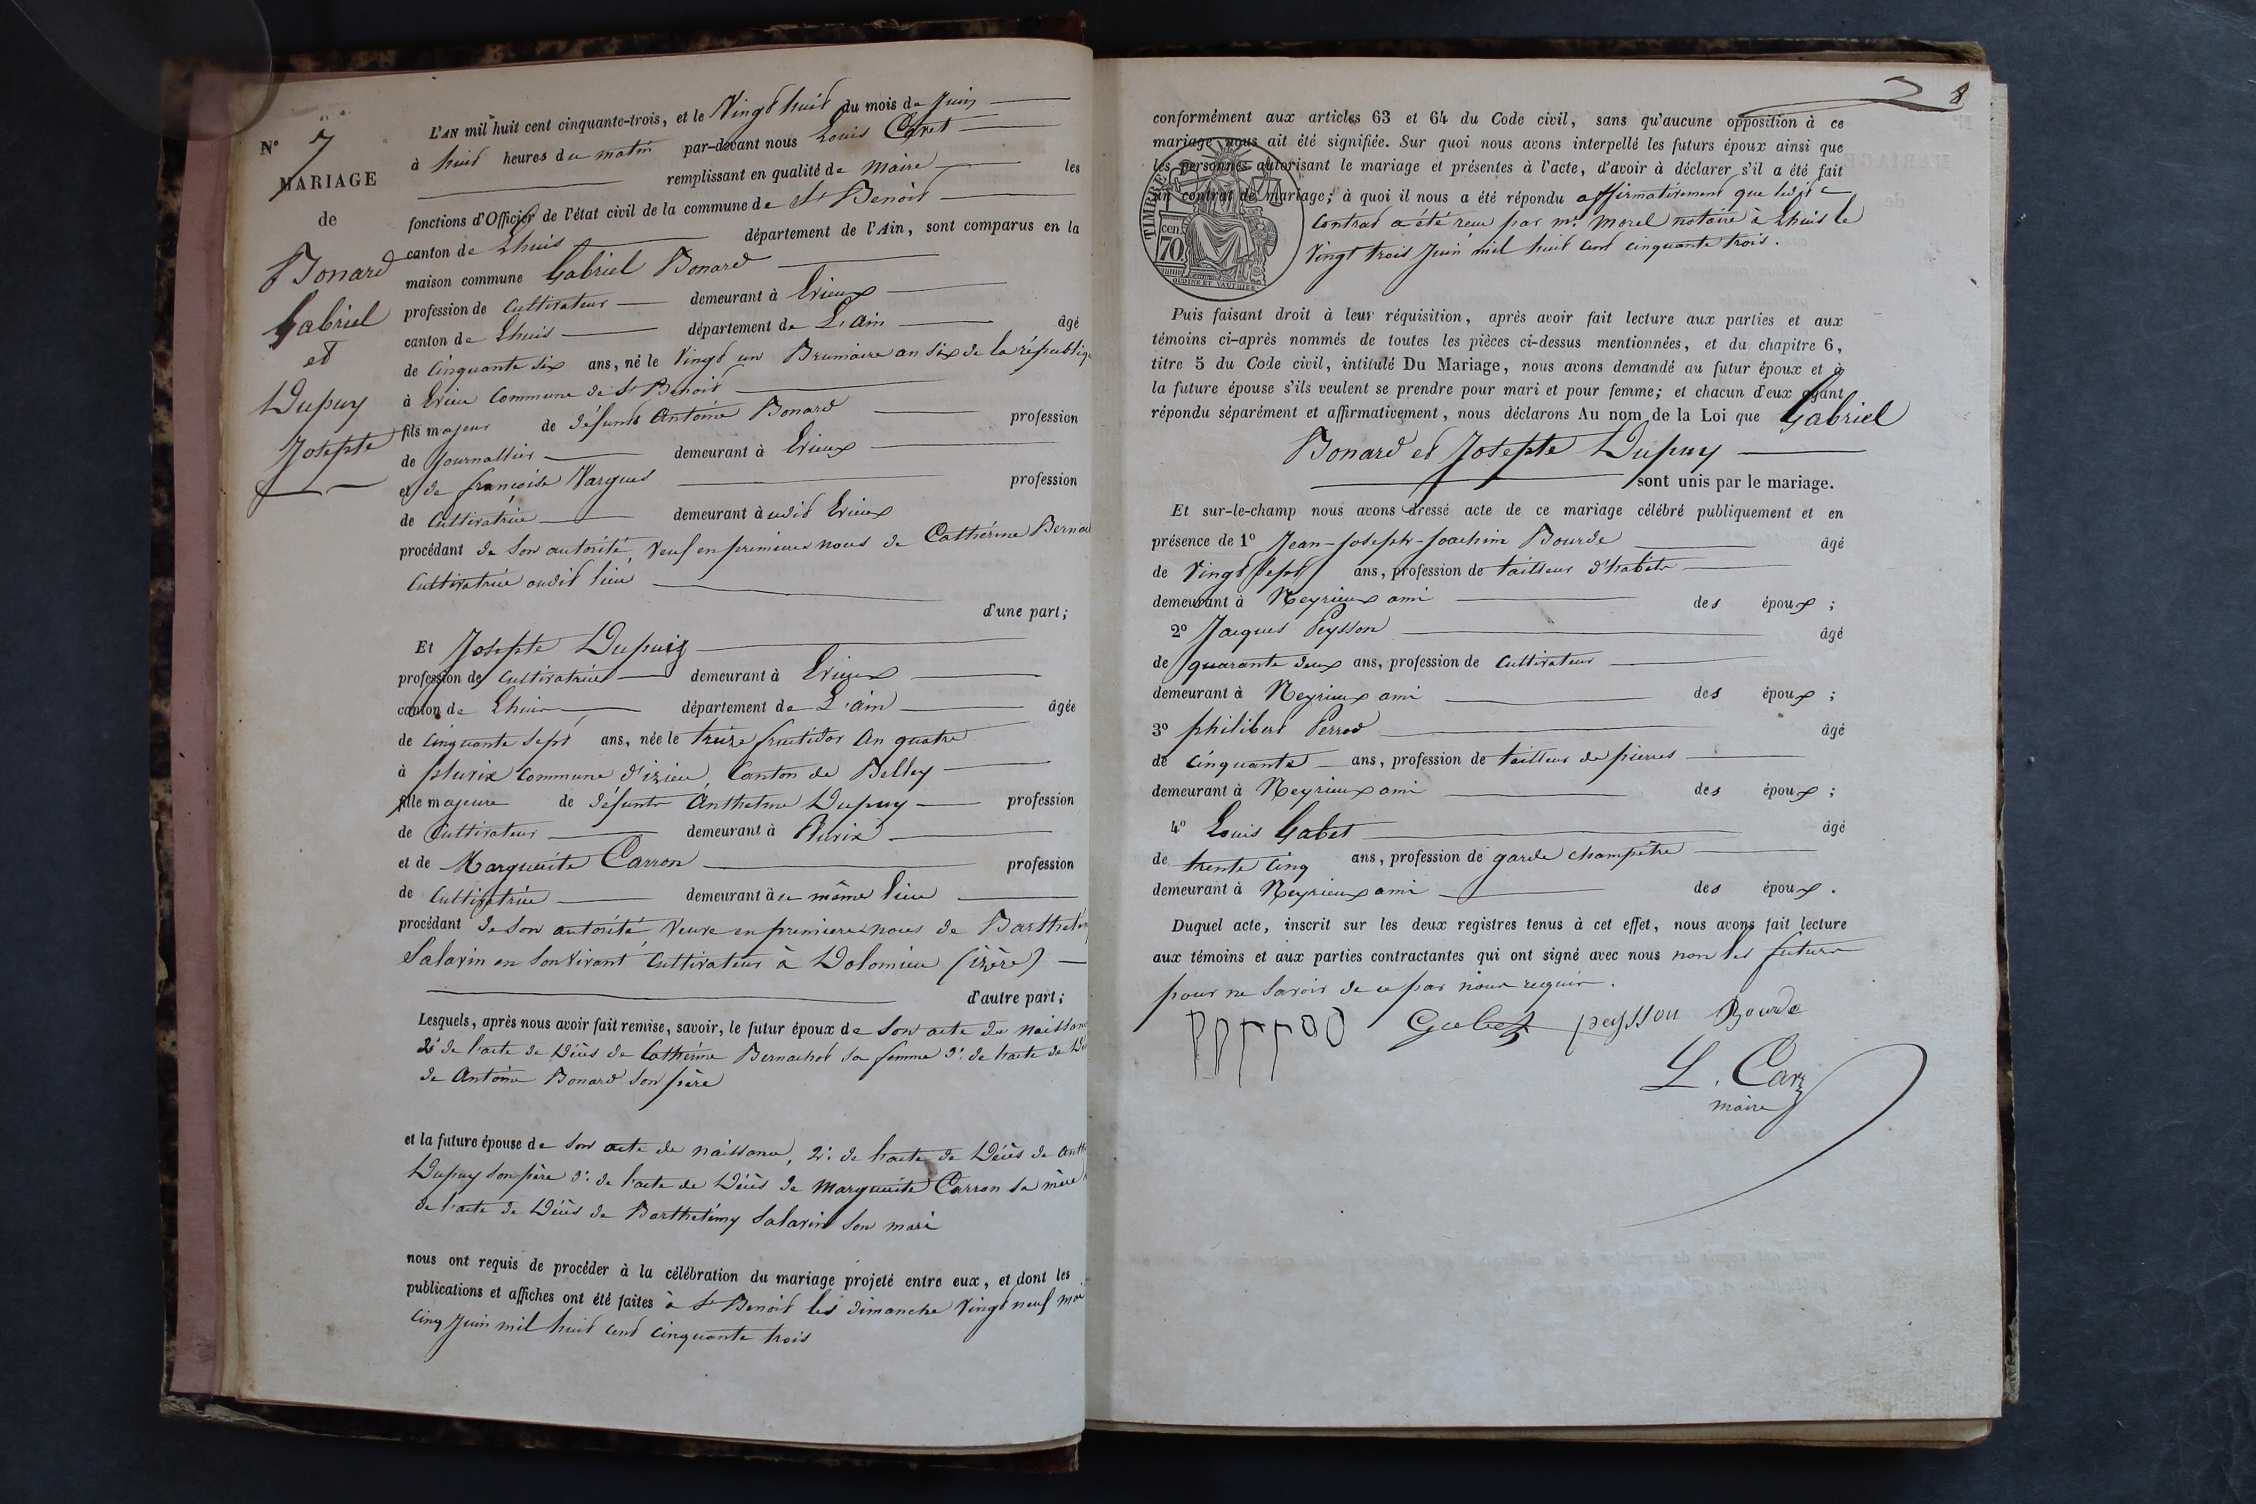 N° 7
MARIAGE
de
Bonard
Gabriel
et
Dupuy
Josephte
L'AN mil huit cent cinquante-trois, et le Vingt huit du mois de Juin
à huit heures du matin par-devant nous Louis Caret
remplissant en qualité de maire les
fonctions d'Officier de l'état civil de la commune de St Benoit
canton de Lhuis département de l'Ain, sont comparus en la
maison commune Gabriel Bonard
profession de Cultivateur demeurant à Erieux
canton de Lhuis département de L'ain âgé
de Cinquante six ans, né le Vingt un Brumaire an six de la républiq
à Erieu Commune de St Benoit
fils majeur de défunt Antoine Bonard profession
de Journallier demeurant à Erieux
et de francoise Vargues profession
de Cultivatrice demeurant à udit Erieux
procédant de son autorité, Veuf en premieres noces de Cathérine Berna
Cultivatrice audit lieu
d'une part;
Et Josephte Dupuiz
profession de Cultivatrice demeurant à Erieux
canton de Lhuis département de L'ain âgée
de Cinquante sept ans, née le treize fructidor An quatre
à pluvix Commune d'izieu Canton de Belley
fille majeure de défunt Anthelme Dupuy profession
de Cultivateur demeurant à Pluvix
et de Marguerite Carron profession
de Cultivatrice demeurant à ce même lieu
procédant de son autorité, Veuve en premieres noces de Barthelem
Salavin en son vivant Cultivateur à Dolomieu (izère)
d'autre part;
Lesquels, après nous avoir fait remise, savoir, le futur époux de son acte de naissan
2° de l'acte de Décès de Cathérine Bernachot sa femme 3° de l'acte de Dé
de Antoine Bonard son père
et la future épouse de son acte de naissance, 2° de l'acte de Décès de Anth
Dupuy son père 3° de l'acte de Décès de Marguerite Carron sa mère
de l'acte de Décès de Barthelémy Salavin son mari
nous ont requis de procéder à la célébration du mariage projeté entre eux, et dont les
publications et affiches ont été faites à St Benoit les dimanche Vingt neuf mai
cinq Juin mil huit cent cinquante trois
8
conformément aux articles 63 et 64 du Code civil, sans qu'aucune opposition à ce
mariage nous ait été signifiée. Sur quoi nous avons interpellé les futurs époux ainsi que
les personnes autorisant le mariage et présentes à l'acte, d'avoir à déclarer s'il a été fait
un contrat de mariage; à quoi il nous a été répondu affirmativement que ledit
Contrat a été reçu par me Morel notaire à Lhuis le
Vingt trois Juin mil huit cent cinquante trois.
TIMBRE
cen.
70
OUDINE ET VAUTHIER
Puis faisant droit à leur réquisition, après avoir fait lecture aux parties et aux
témoins ci-après nommés de toutes les pièces ci-dessus mentionnées, et du chapitre 6,
titre 5 du Code civil, intitulé Du Mariage, nous avons demandé au futur époux et à
la future épouse s'ils veulent se prendre pour mari et pour femme; et chacun d'eux ayant
répondu séparément et affirmativement, nous déclarons Au nom de la Loi que Gabriel
Bonard et Josephte Dupuy
sont unis par le mariage.
Et sur-le-champ nous avons dressé acte de ce mariage célébré publiquement et en
présence de 1° Jean-Joseph-Joachim Bourde âgé
de Vingt sept ans, profession de tailleur d'habits
demeurant à Neyrieux ami des époux;
2° Jacques Peysson âgé
de quarante deux ans, profession de Cultivateur
demeurant à Neyrieux ami des époux;
3° philibert Perrod âgé
de Cinquante ans, profession de tailleur de pierres
demeurant à Neyrieux ami des époux;
4° Louis Gabet âgé
de trente Cinq ans, profession de garde champêtre
demeurant à Neyrieux ami des époux.
Duquel acte, inscrit sur les deux registres tenus à cet effet, nous avons fait lecture
aux témoins et aux parties contractantes qui ont signé avec nous non les futurs
pour ne savoir de ce par nous requis.
perrod Gabet peysson Bourde
L. Caret
maire